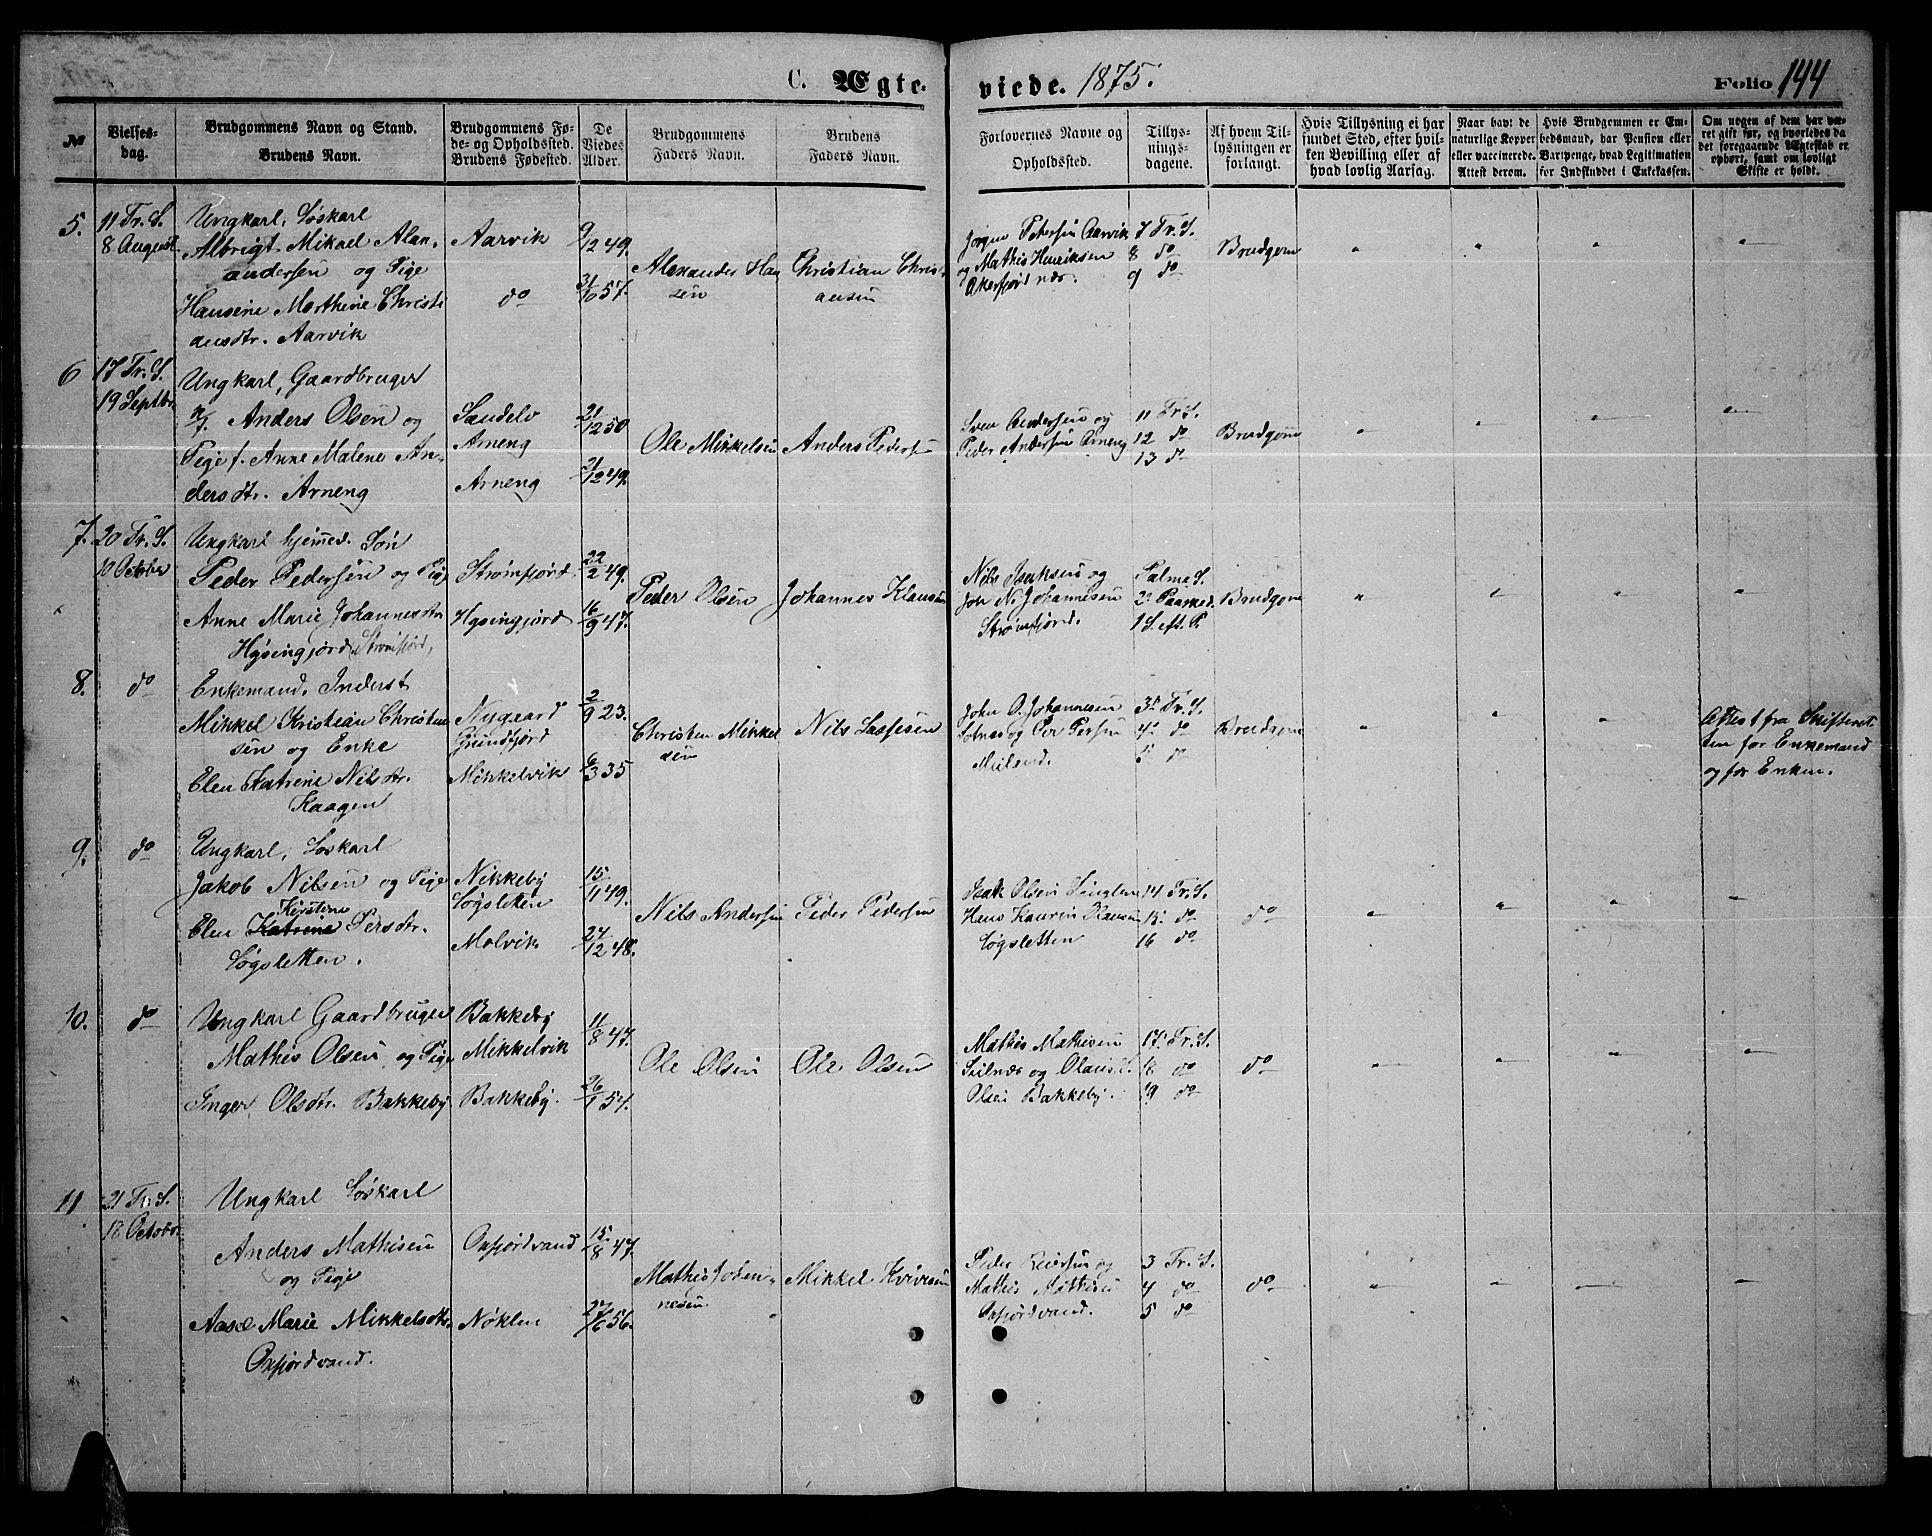 C. Ægte- viede. 1875. Folio 144
No
Vielses-
dag.
Brudgommens Navn og Stand.
Brudens Navn.
Brudgommens Fø-
de- og Opholdssted.
Brudens Fødested.
De
Viedes
Alder.
Brudgommens
Faders Navn.
Brudens
Faders Navn.
Forlovernes Navne og
Opholdssted.
Tillys-
nings-
dagene.
Af hvem Til-
lysningen er
forlangt.
Hvis Tillysning ei har
fundet Sted, efter hvil-
ken Bevilling eller af
hvad lovlig Aarsag.
Naar havt de
naturlige Kopper
eller vaccinerede.
Attest derom.
Hvis Brudgommen er Em-
bedsmand, har Pension eller
Vartpenge, hvad Legitimation
for Indskuddet i Enkekassen.
Om nogen af dem har væ-
ret gift før, og hvorledes da
det foregaaende Ægteskab er
ophørt, samt om lovligt
Skifte er holdt.
5.
11 Tr. S.
8 August
Ungkarl, Løskarl
Albrigt Mikael Alan-
andersen og Pige
Hansine Marthine Christi
ansdtr. Aarvik
Aarvik
do
9/12 49.
31/10 57.
Alexander Han
sen
Christian Christ
ansen
Jørgen Petersen Aarvik
og Mathis Henriksen
Akerfjordnæs.
7 Tr. S.
8 do
9 do
Brudgom
6
17 Tr. S.
19 Septbr.
Ungkarl, Gaardbruger
Anders Olsen og
Pige f. Anne Malene An-
dersdtr. Arneng
Sandelv
Arneng
Arneng
21/12 50
21/12 49.
Ole Mikkelsen
Anders Pedersen
Sven Andersen og
Peder Andersen Arneng
11 Tr. S.
12 do
13 do
Brudgom
7.
20 Tr. S.
10 October
Ungkarl hjemmev. Søn
Peder Pedersen og Pige
Anne Marie Johannesdtr
Hysingjord Strømfjord,
Strømfjord
Hysingjord
22/2 49.
16/9 47.
Peder Olsen
Johannes Klausen
Nils Isaksen og
Joh N. Johannesen
Strømfjord.
Palme S.
2 Paasked.
1 S. eft. P.
Brudgom
8.
do
Enkemand. Inderst
Mikkel Kristian Christen
sen og Enke
Elen Katrine Nilsdtr.
Kaagen
Nygaard
Grundfjord
Mikkelvik
2/9 23.
6/3 35
Christen Mikkel
sen
Nils Lassesen
John O. Johannesen
Sotnæs og Per Persen
3 Tr. S.
4 do
5 do
Brudgom
Attest fra Skifteret
ten for Enkemand
og for Enken.
9.
do
Ungkarl, Løskarl
Jakob Nilsen og Pige
Kirstine
Elen Katrine Persdtr.
Løgsletten.
Nikkeby
Løgsletten
Molvik
15/11 49.
24/12 48.
Nils Andersen
Peder Pedersen
Isak Olsen
Hans Laurin Hansen
Løgsletten
14 Tr. S.
15 do
16 do
do
10.
do
Ungkarl Gaardbruger
Mathis Olsen og Pige
Inger Olsdtr. Bakkeby
Bakkeby
Mikkelvik
Bakkeby.
11/8 47.
26/1 54.
Ole Olsen
Ole Olsen
Mathis Mathisen
og Olaus
Olsen Bakkeby.
17 Tr. S.
18 do
19 do
do
11
21 Tr. S.
18 October
Ungkarl Løskarl
Anders Mathisen
og Pige
Aase Marie Mikkelsdtr.
Oxfjordvand.
Oxfjordvand
Nøklen
15/8 47.
27/6 56.
Mathis Johan-
nesen
Mikkel Kvivesen
Peder Reiersen og
Mathis Mathisen
Oxfjordvand.
3 Tr. S.
4 do
5 do
do